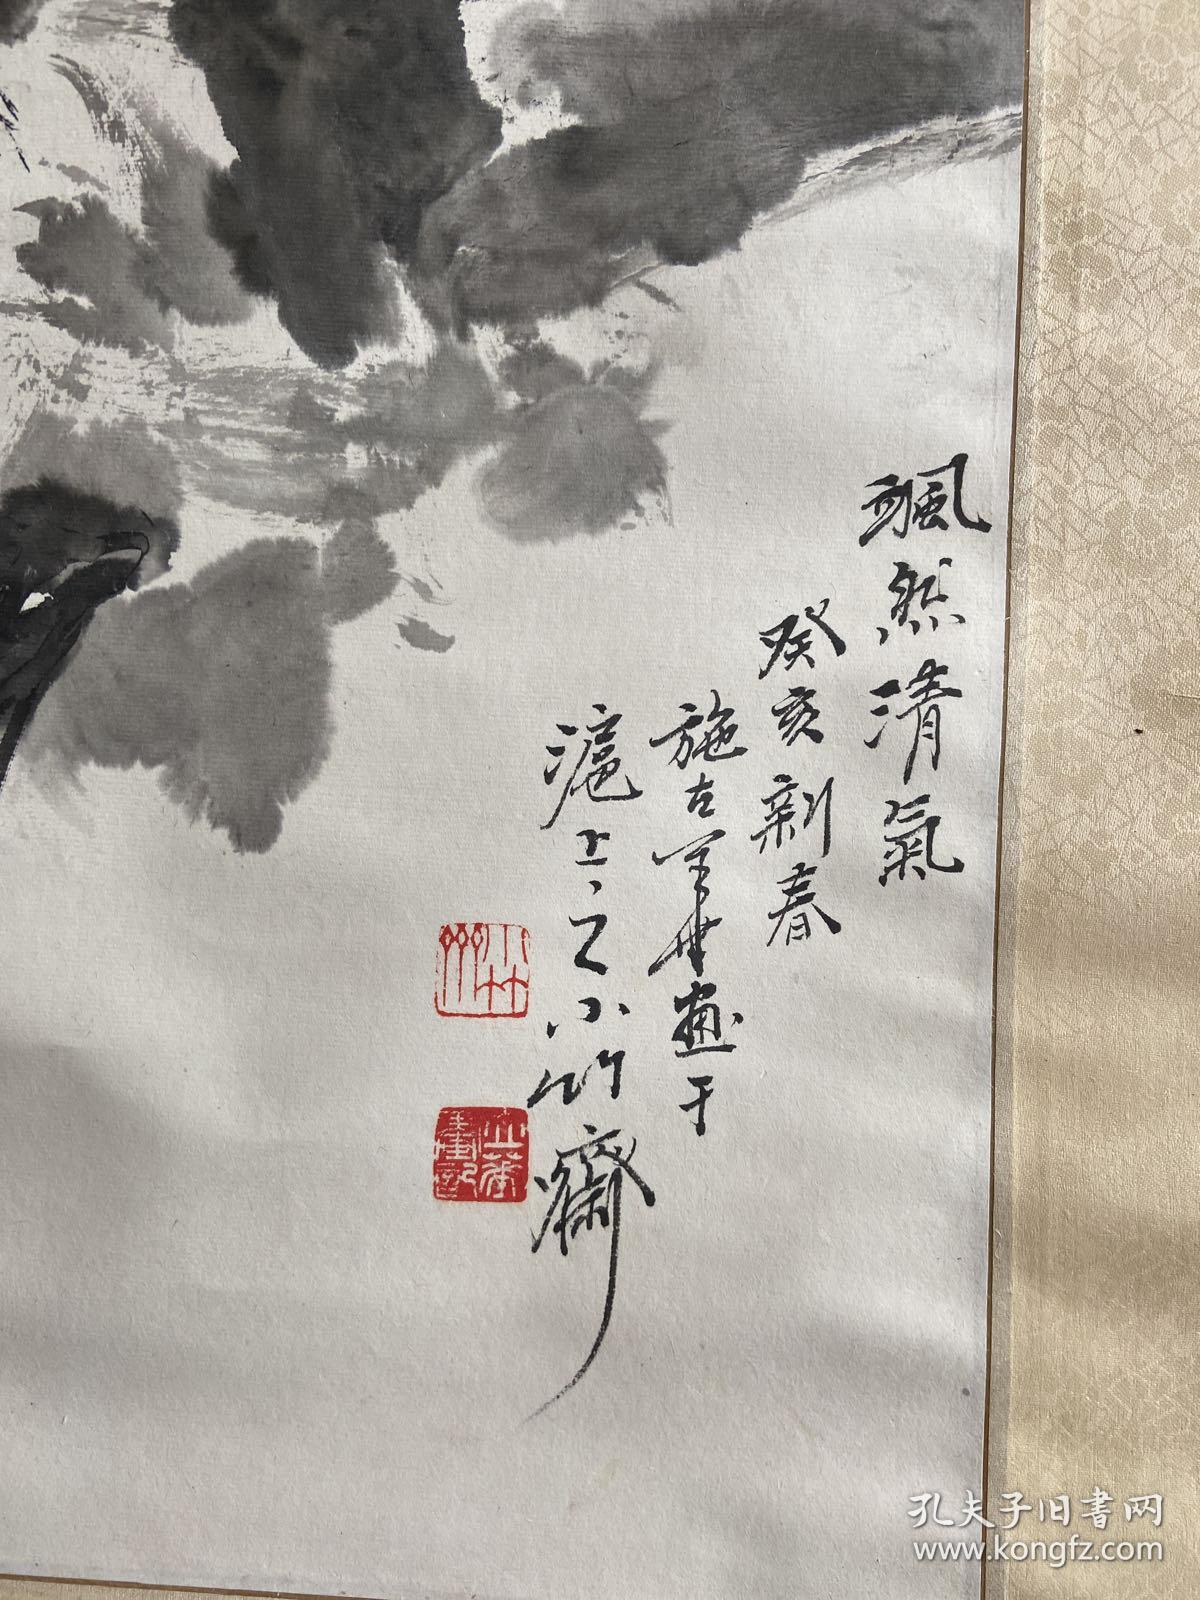 颯然清氣
癸亥新春
施立華畫于
滬上之小竹齋
孔夫子旧书网
www.kongfz.com